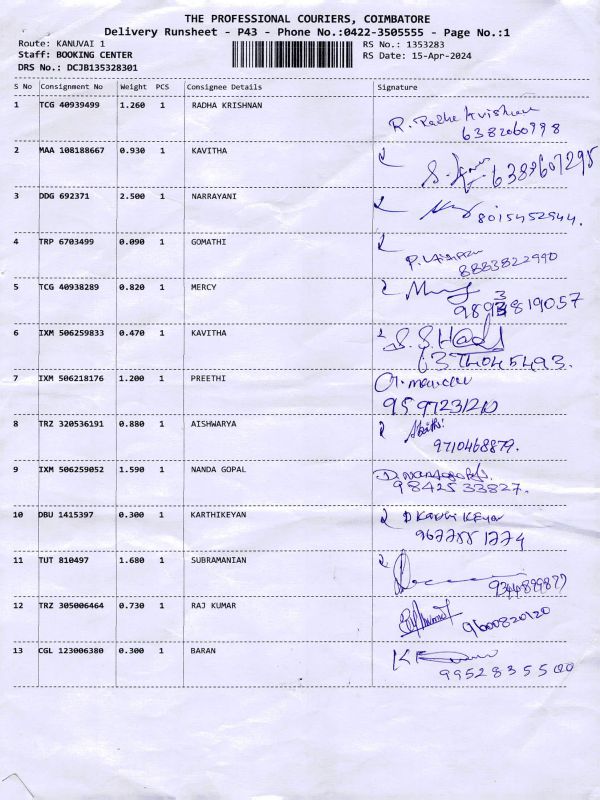 THE PROFESSIONAL COURIERS, COIMBATORE
Delivery Runsheet - P43 - Phone No.:0422-3505555 - Page No.:1
Route: KANUVAI 1 RS No.: 1353283
Staff: BOOKING CENTER RS Date: 15-Apr-2024
DRS No.: DCJB135328301
S No Consignment No Weight PCS Consignee Details Signature
1 TCG 40939499 1.260 1 RADHA KRISHNAN
R. Radha Krishnan
6382060998
2 MAA 108188667 0.930 1 KAVITHA
6382607295
3 DDG 692371 2.500 1 NARRAYANI
8015452944.
4 TRP 6703499 0.090 1 GOMATHI
8883822990
5 TCG 40938289 0.820 1 MERCY
6 IXM 506259833 0.470 1 KAVITHA
6374045493.
7 IXM 506218176 1.200 1 PREETHI
9597231210
8 TRZ 320536191 0.880 1 AISHWARYA
9710468879.
9 IXM 506259052 1.590 1 NANDA GOPAL
9842533827.
10 DBU 1415397 0.300 1 KARTHIKEYAN
D Karthikeyan
11 TUT 810497 1.680 1 SUBRAMANIAN
12 TRZ 305006464 0.730 1 RAJ KUMAR
9600820120
13 CGL 123006380 0.300 1 BARAN
9952835500